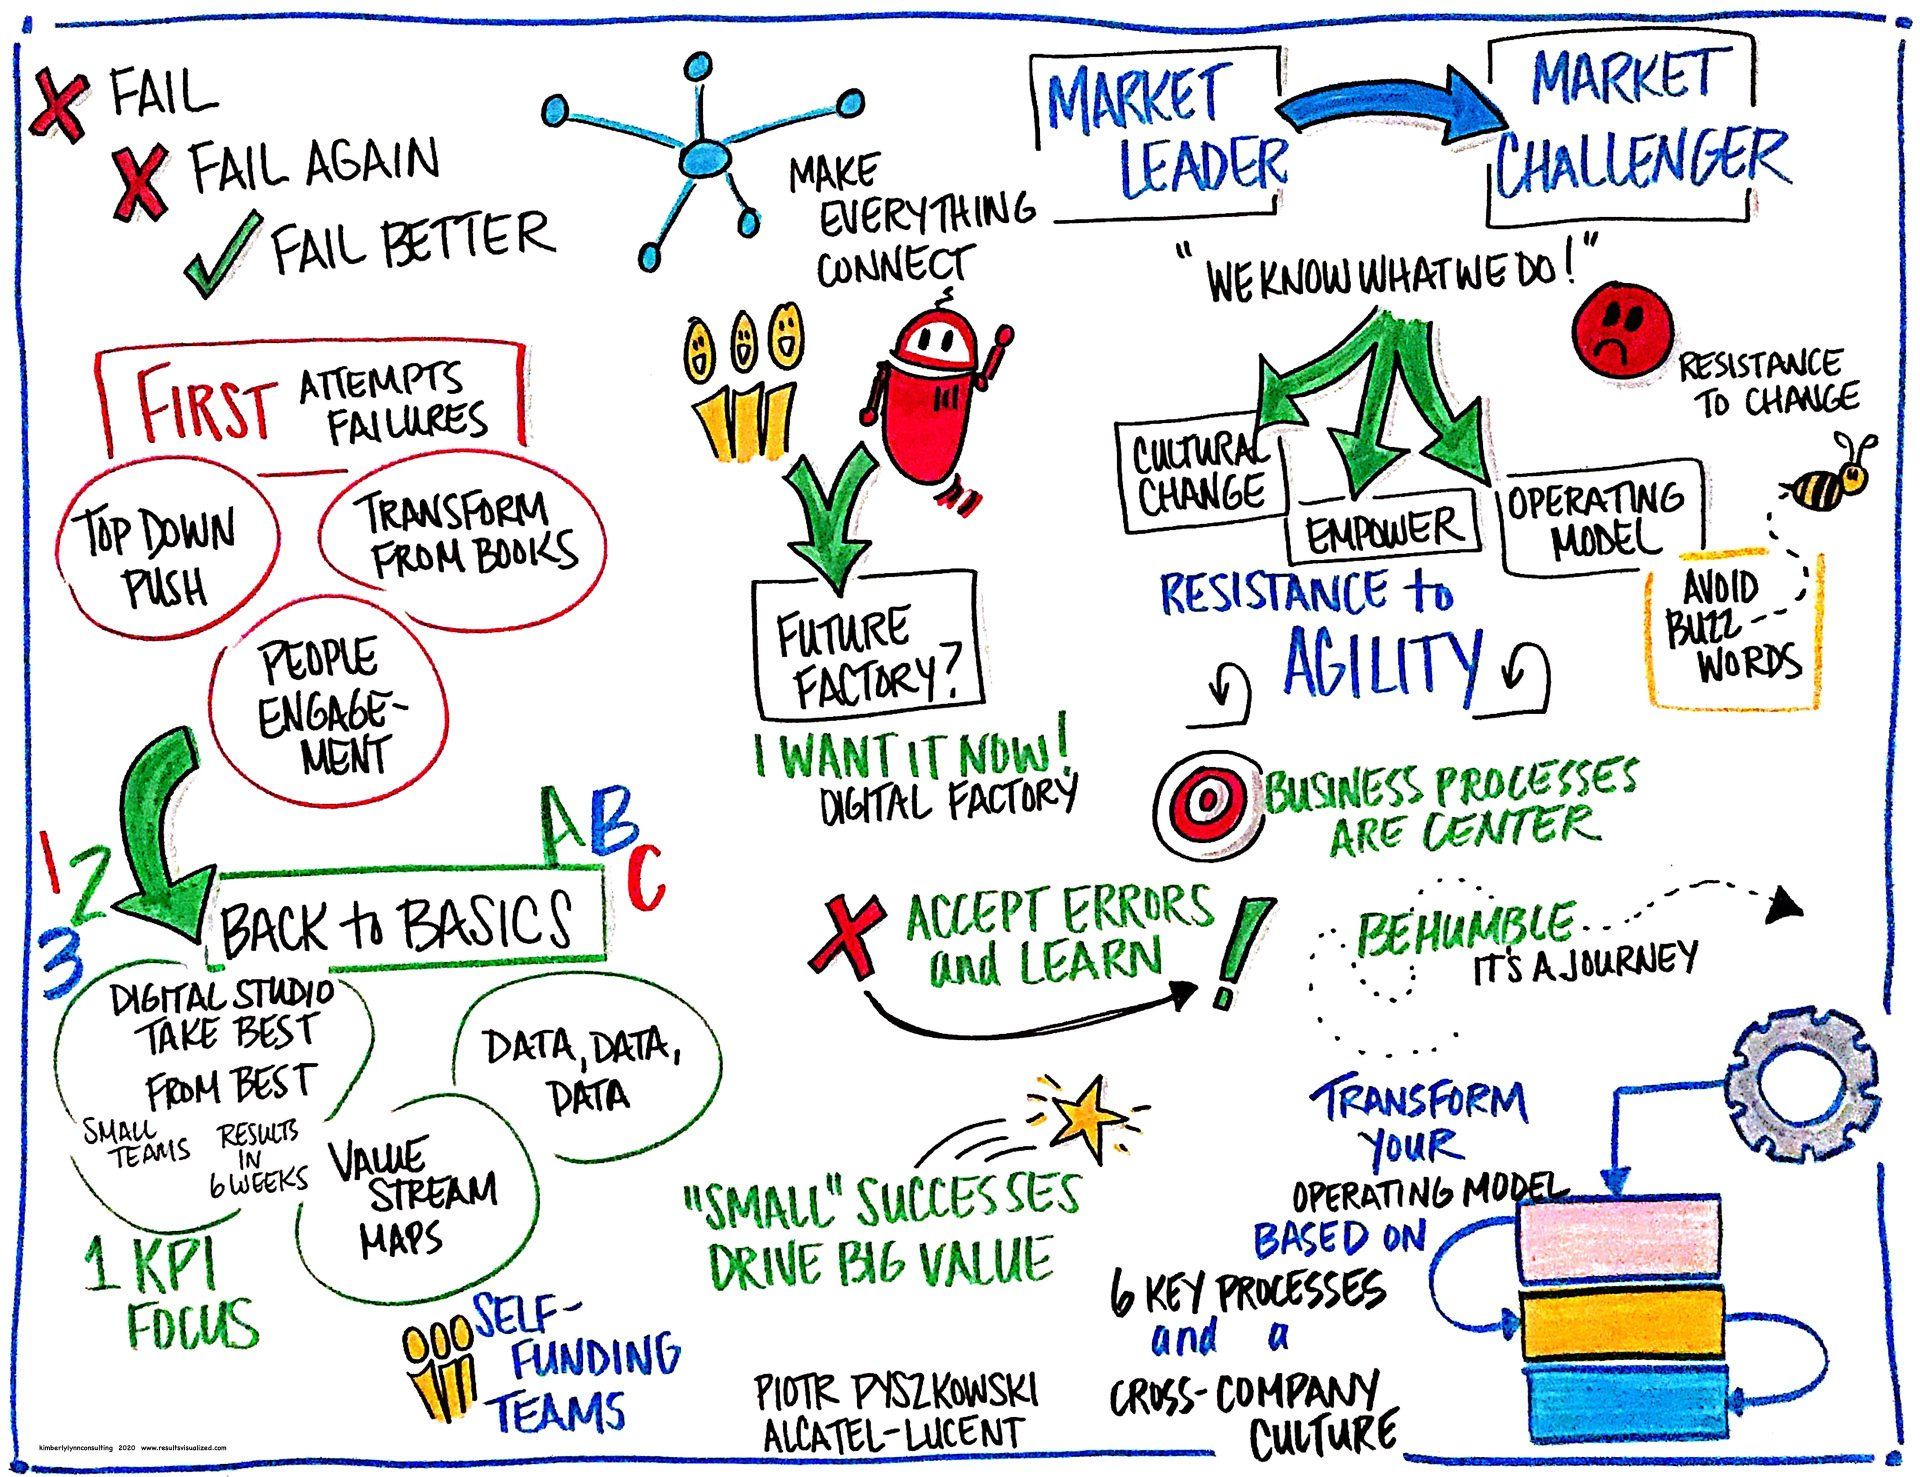 FAIL
FAIL AGAIN
FAIL BETTER
MAKE
EVERYTHING
CONNECT
MARKET
LEADER
MARKET
CHALLENGER
"WE KNOW WHAT WE DO!"
RESISTANCE
TO CHANGE
FIRST ATTEMPTS
FAILURES
TOP DOWN
PUSH
TRANSFORM
FROM BOOKS
PEOPLE
ENGAGE-
MENT
CULTURAL
CHANGE
EMPOWER
OPERATING
MODEL
AVOID
BUZZ-
WORDS
RESISTANCE to
AGILITY
FUTURE
FACTORY?
I WANT IT NOW!
DIGITAL FACTORY
BUSINESS PROCESSES
ARE CENTER
1
2
3
A
B
C
BACK to BASICS
DIGITAL STUDIO
TAKE BEST
FROM BEST
SMALL
TEAMS
RESULTS
IN
6 WEEKS
DATA, DATA,
DATA
VALUE
STREAM
MAPS
1 KPI
FOCUS
SELF-
FUNDING
TEAMS
ACCEPT ERRORS
and LEARN
!
BE HUMBLE
IT'S A JOURNEY
"SMALL" SUCCESSES
DRIVE BIG VALUE
TRANSFORM
YOUR
OPERATING MODEL
BASED ON
6 KEY PROCESSES
and a
CROSS-COMPANY
CULTURE
PIOTR PYSZKOWSKI
ALCATEL-LUCENT
kimberlylynnconsulting 2020 www.resultsvisualized.com